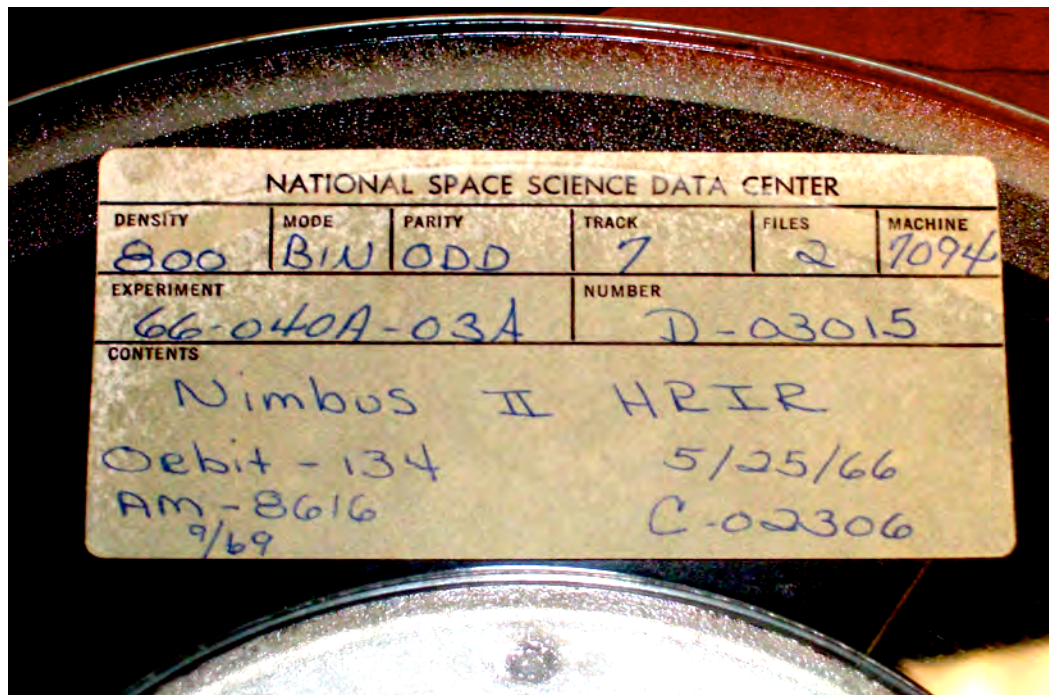 NATIONAL SPACE SCIENCE DATA CENTER
DENSITY MODE PARITY TRACK FILES MACHINE
800 BIN ODD 7 2 7094
EXPERIMENT NUMBER
66-040A-03A D-03015
CONTENTS
Nimbus II HRIR
Orbit - 134 5/25/66
AM-8616 C-02306
9/69